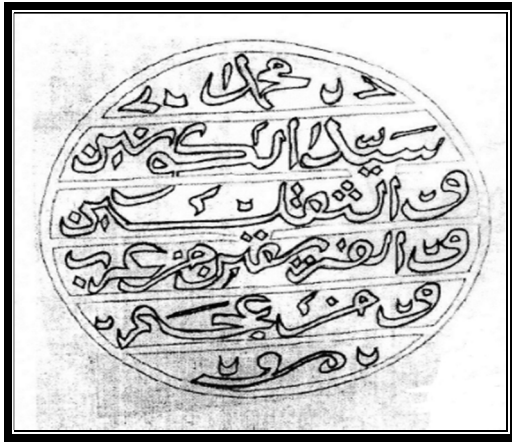 محمد
سيد الكونين
والثقلين
والفريقين من عرب
ومن عجم